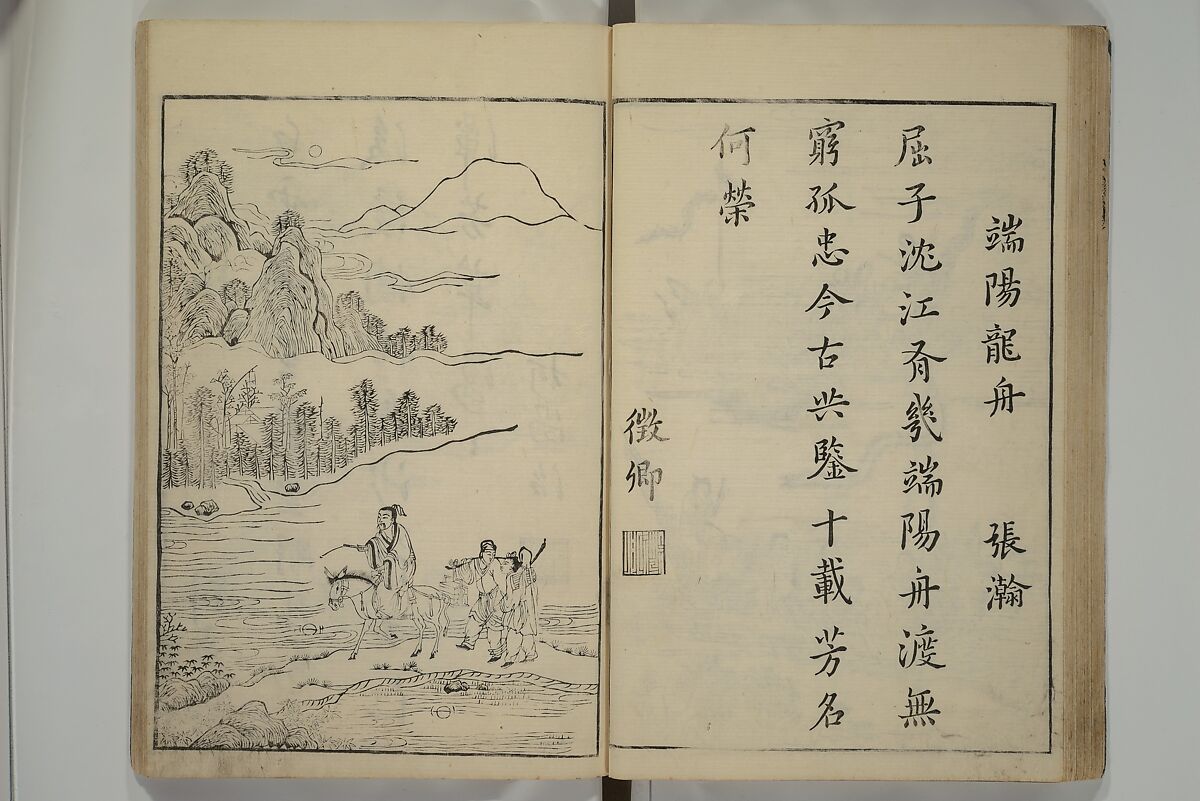 端陽龍舟 張瀚
屈子沈江有幾端陽舟渡無
窮孤忠今古共鑒十載芳名
何榮
徵卿